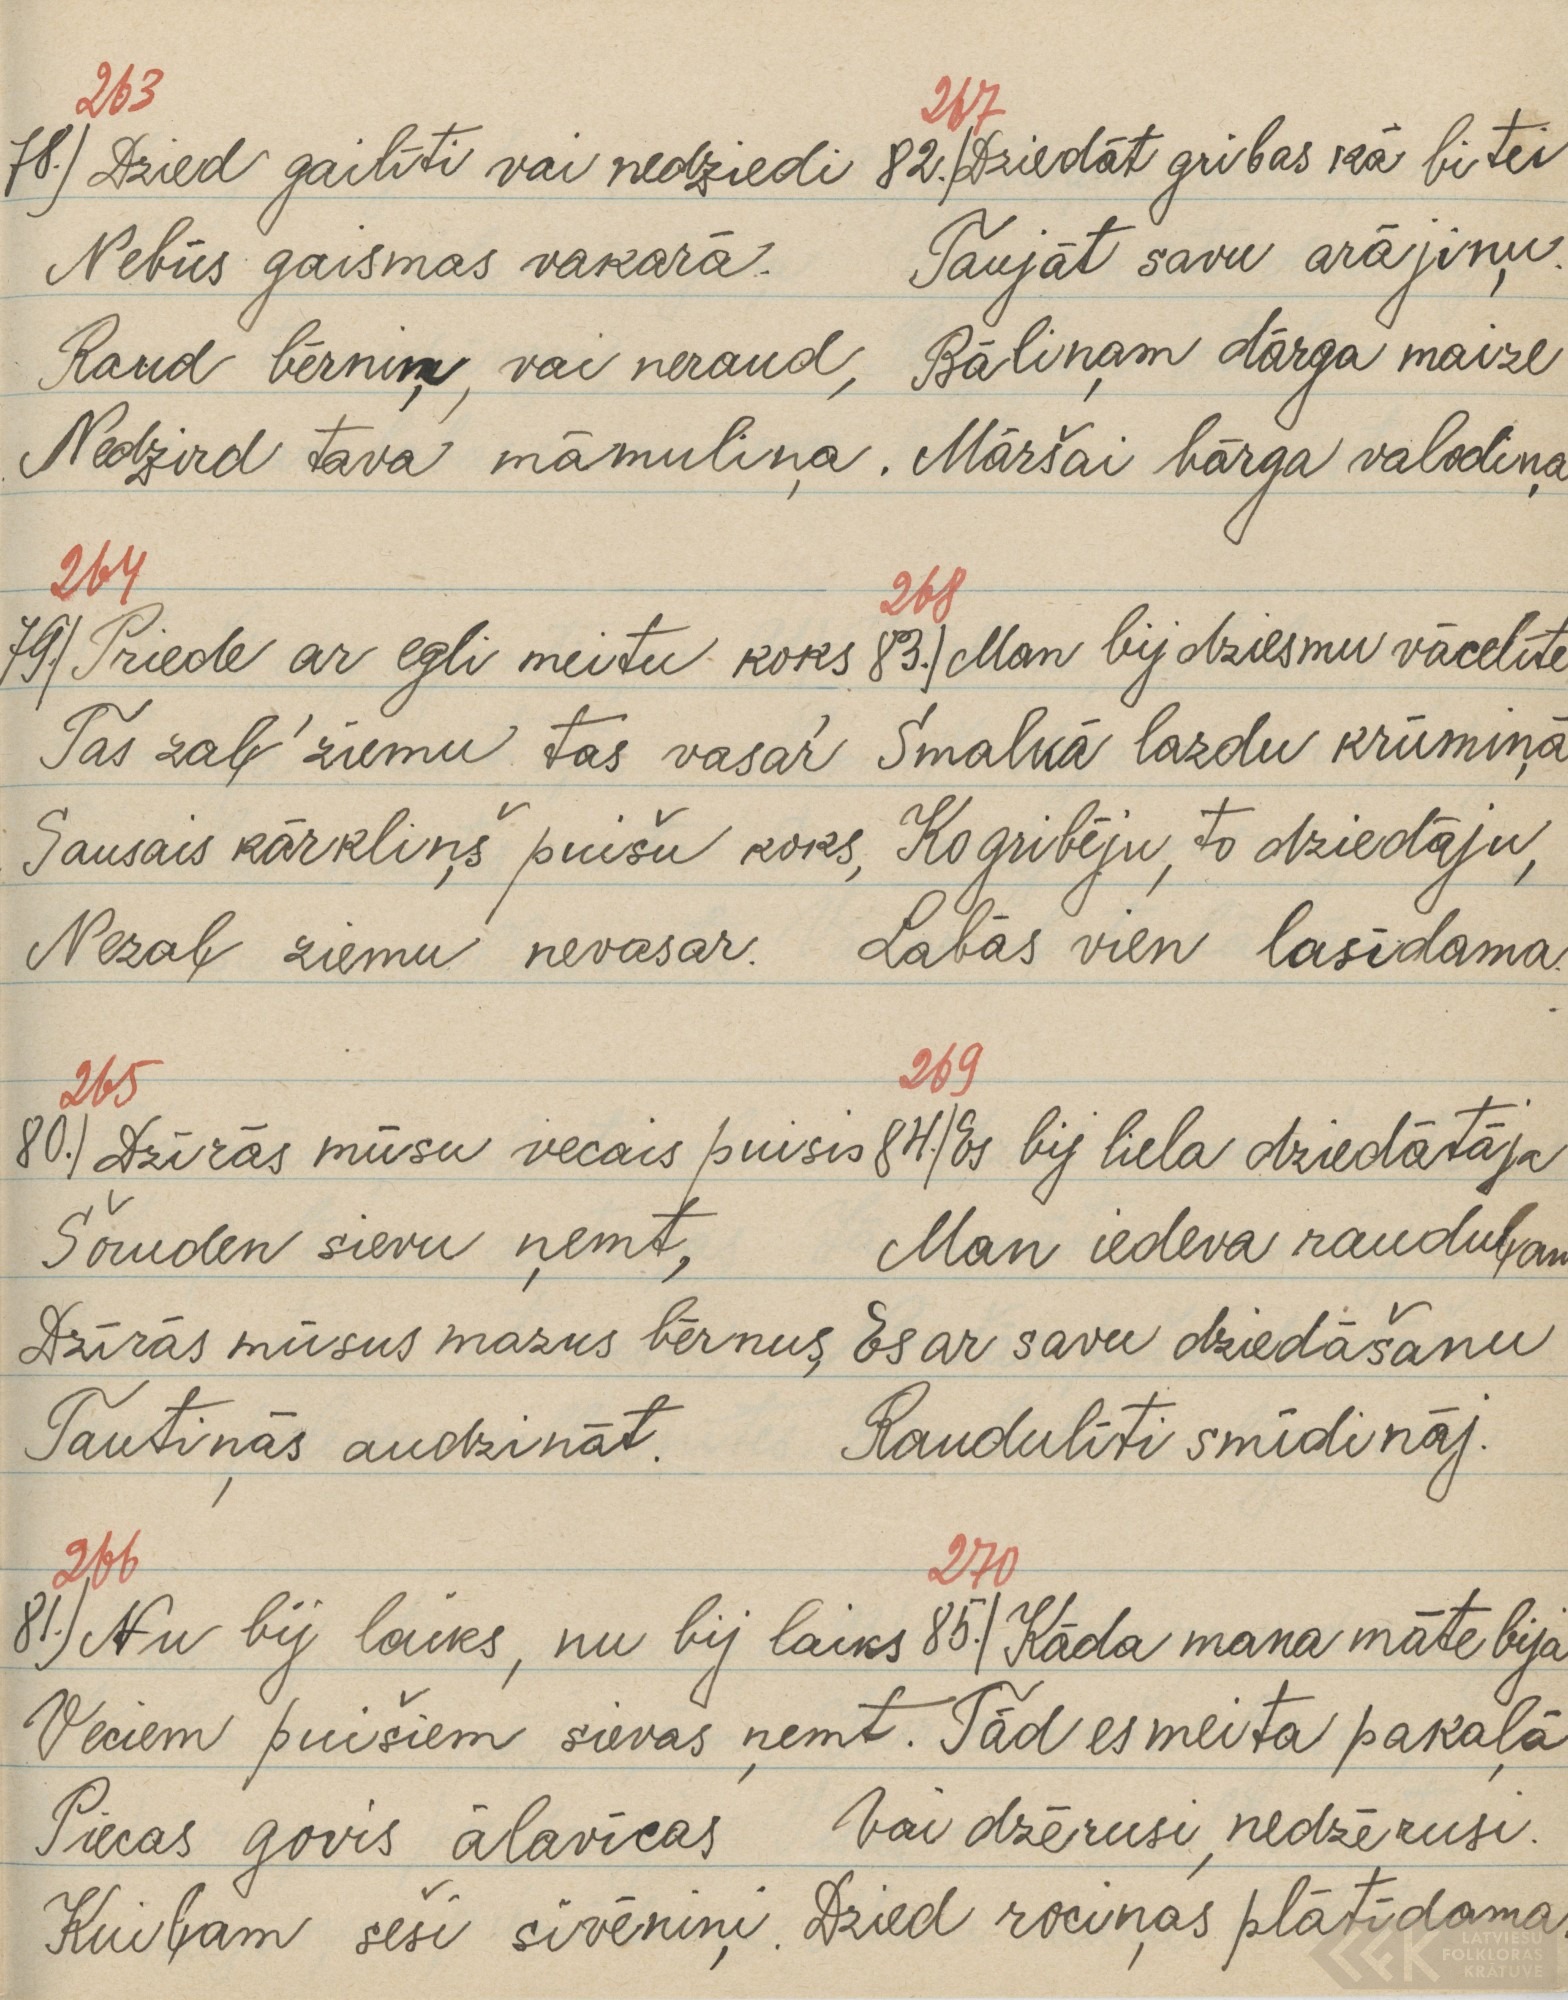 263
78.) Dzied gailīti vai nedziedi
Nebūs gaismas vakarā.
Raud bērniņ, vai neraud,
Nedzird tava māmuliņa.
264
79.) Priede ar egli meitu koks
Tas zaļ' ziemu tas vasar'
Sausais kārkliņš puišu koks,
Nezaļ ziemu nevasar.
265
80.) Dzīrās mūsu vecais puisis
Šoruden sievu ņemt,
Dzīrās mūsus mazus bērnus,
Tautiņās audzināt.
266
81.) Nu bij laiks, nu bij laiks
Veciem puišiem sievas ņemt.
Piecas govis ālavīcas
Kuiļam seši sivēniņi.
267
82.) Dziedāt gribas kā bitei
Taujāt savu arājiņu.
Bāliņam dārga maize
Māršai bārga valodiņa
268
83.) Man bij dziesmu vācelīte
Smalkā lazdu krūmiņā
Ko gribēju, to dziedāju,
Labās vien lasīdama.
269
84.) Es bij liela dziedātāja
Man iedeva rauduļam
Es ar savu dziedāšanu
Raudulīti smīdināj.
270
85.) Kāda mana māte bija
Tād es meita pakaļā
Vai dzērusi, nedzērusi.
Dzied rociņas plātīdama.
LATVIEŠU
FOLKLORAS
KRĀTUVE